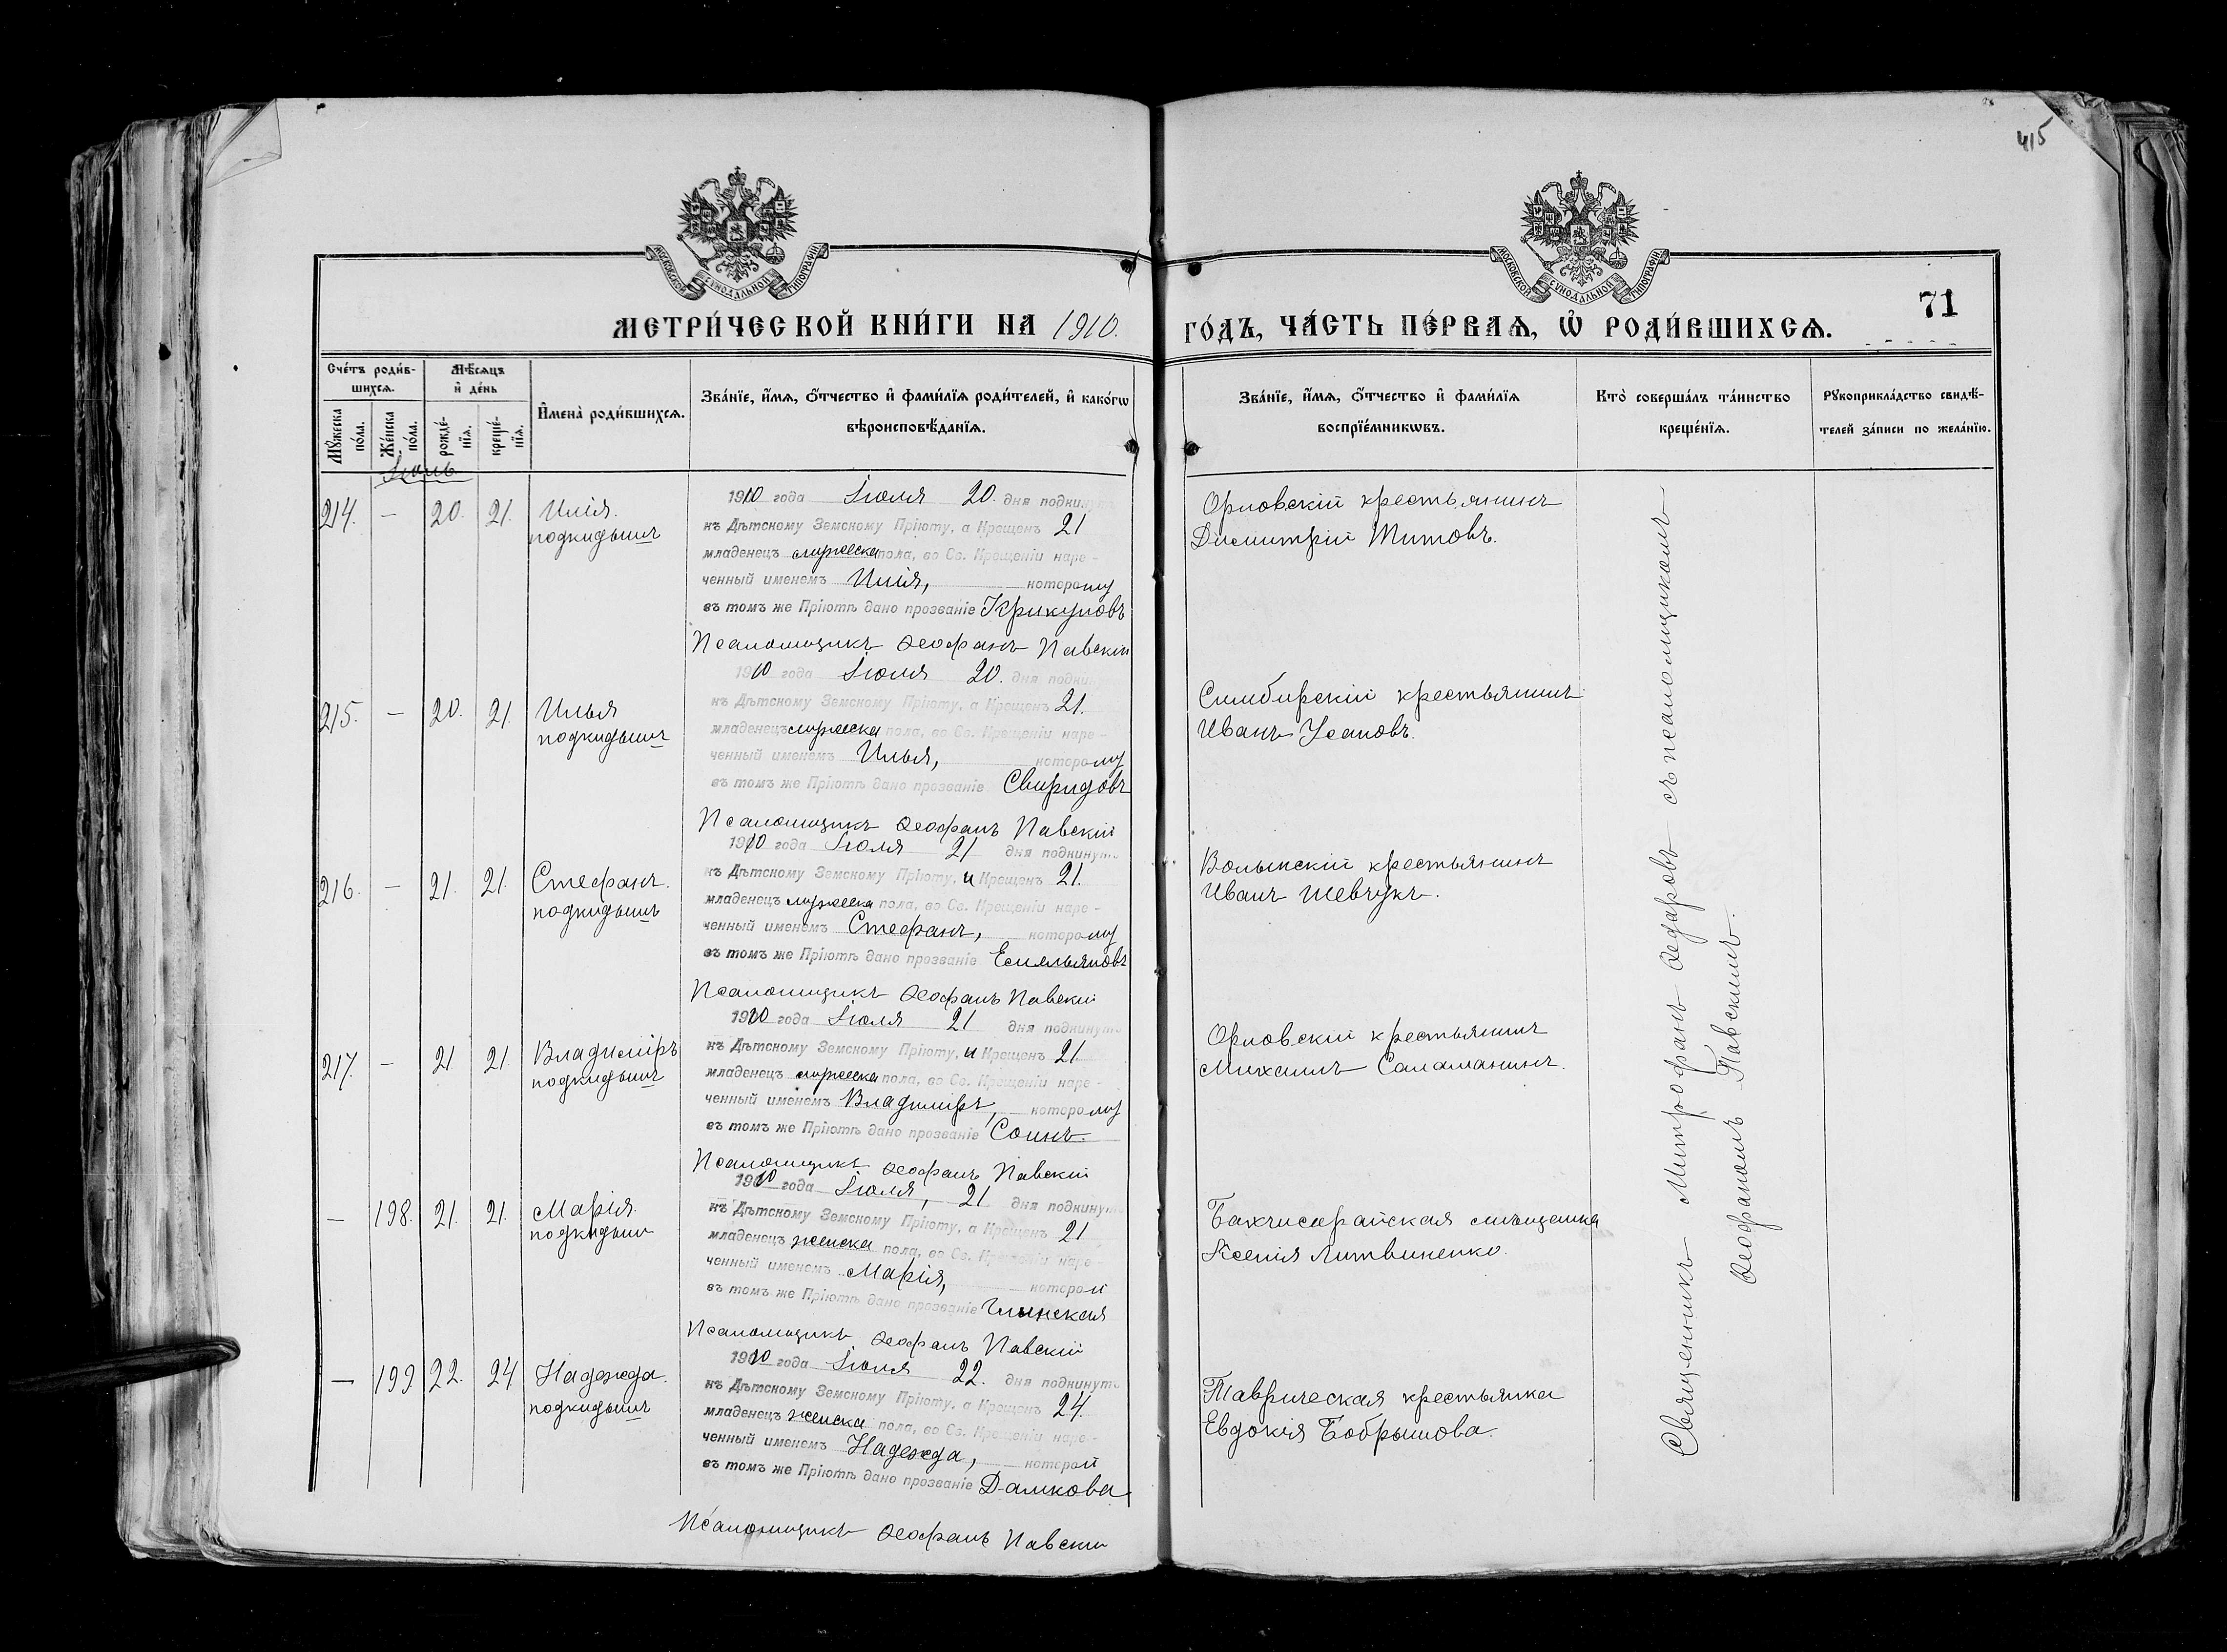 415
МОСКОВСКОЙ СѴНОДАЛЬНОЙ ТИПОГРАФІИ
МОСКОВСКОЙ СѴНОДАЛЬНОЙ ТИПОГРАФІИ
71
МЕТРИ́ЧЕСКОЙ КНИ́ГИ НА 1910. ГО́ДЪ, ЧА́СТЬ ПЕ́РВАѦ, Ѡ҆ РОДИ́ВШИХСѦ.
Сче́тъ роди́в-
шихсѧ.
Мꙋ́жеска по́ла.
Же́нска по́ла.
Мѣ́сѧцъ
и҆ де́нь
рожде́-нїѧ.
креще́-нїѧ.
И҆мена̀ роди́вшихсѧ.
Зва́нїе, и҆́мѧ, ѻ҆́тчество и҆ фами́лїѧ роди́телей, и҆ како́гѡ
вѣроисповѣ́данїѧ.
Зва́нїе, и҆́мѧ, ѻ҆́тчество и҆ фами́лїѧ
воспрїе́мникѡвъ.
Кто̀ соверша́лъ та́инство
креще́нїѧ.
Рꙋкоприкла́дство свидѣ́-
телей за́писи по жела́нїю.
Іюль
214. — 20. 21. Илія.
подкидышъ
1910 года Іюля 20. дня подкинутъ
къ Дѣтскому Земскому Пріюту, а Крещенъ 21
младенецъ мужеска пола, во Св. Крещеніи наре-
ченный именемъ Илія, которому
въ томъ же Пріютѣ дано прозваніе Крикуновъ
Псаломщикъ Ѳеофанъ Павскій
Орловскій крестьянинъ
Димитрій Титовъ.
215. — 20. 21 Илья
подкидышъ
1910 года Іюля 20. дня подкинутъ
къ Дѣтскому Земскому Пріюту, а Крещенъ 21.
младенецъ мужеска пола, во Св. Крещеніи наре-
ченный именемъ Илья, которому
въ томъ же Пріютѣ дано прозваніе Свиридовъ
Псаломщикъ Ѳеофанъ Павскій
Симбирскій крестьянинъ
Иванъ Усановъ.
216. — 21. 21. Стефанъ.
подкидышъ
1910 года Іюля 21 дня подкинутъ
къ Дѣтскому Земскому Пріюту, и Крещенъ 21.
младенецъ мужеска пола, во Св. Крещеніи наре-
ченный именемъ Стефанъ, которому
въ томъ же Пріютѣ дано прозваніе Емельяновъ
Псаломщикъ Ѳеофанъ Павскій
Волынскій крестьянинъ
Иванъ Шевчукъ.
217. — 21 21. Владиміръ
подкидышъ
1910 года Іюля 21 дня подкинутъ
къ Дѣтскому Земскому Пріюту, и Крещенъ 21
младенецъ мужеска пола, во Св. Крещеніи наре-
ченный именемъ Владиміръ, которому
въ томъ же Пріютѣ дано прозваніе Сошнъ.
Псаломщикъ Ѳеофанъ Павскій
Орловскій крестьянинъ
Михаилъ Саламанинъ.
— 198. 21. 21. Марія.
подкидыш
1910 года Іюля, 21 дня подкинутъ
къ Дѣтскому Земскому Пріюту, а Крещенъ 21
младенецъ женска пола, во Св. Крещеніи наре-
ченный именемъ Марія, которой
въ томъ же Пріютѣ дано прозваніе Глинская
Псаломщикъ Ѳеофанъ Павскій
Бахчисарайская мѣщанка
Ксенія Литвиненко.
— 199 22. 24 Надежда.
подкидышъ
1910 года Іюля 22. дня подкинутъ
къ Дѣтскому Земскому Пріюту, а Крещенъ 24.
младенецъ женска пола, во Св. Крещеніи наре-
ченный именемъ Надежда, которой
въ томъ же Пріютѣ дано прозваніе Далкова
Псаломщикъ Ѳеофанъ Павскій
Таврическая крестьянка
Евдокія Бобрышова.
Священникъ Митрофанъ Ѳедоровъ съ псаломщикомъ
Ѳеофаномъ Павскимъ.